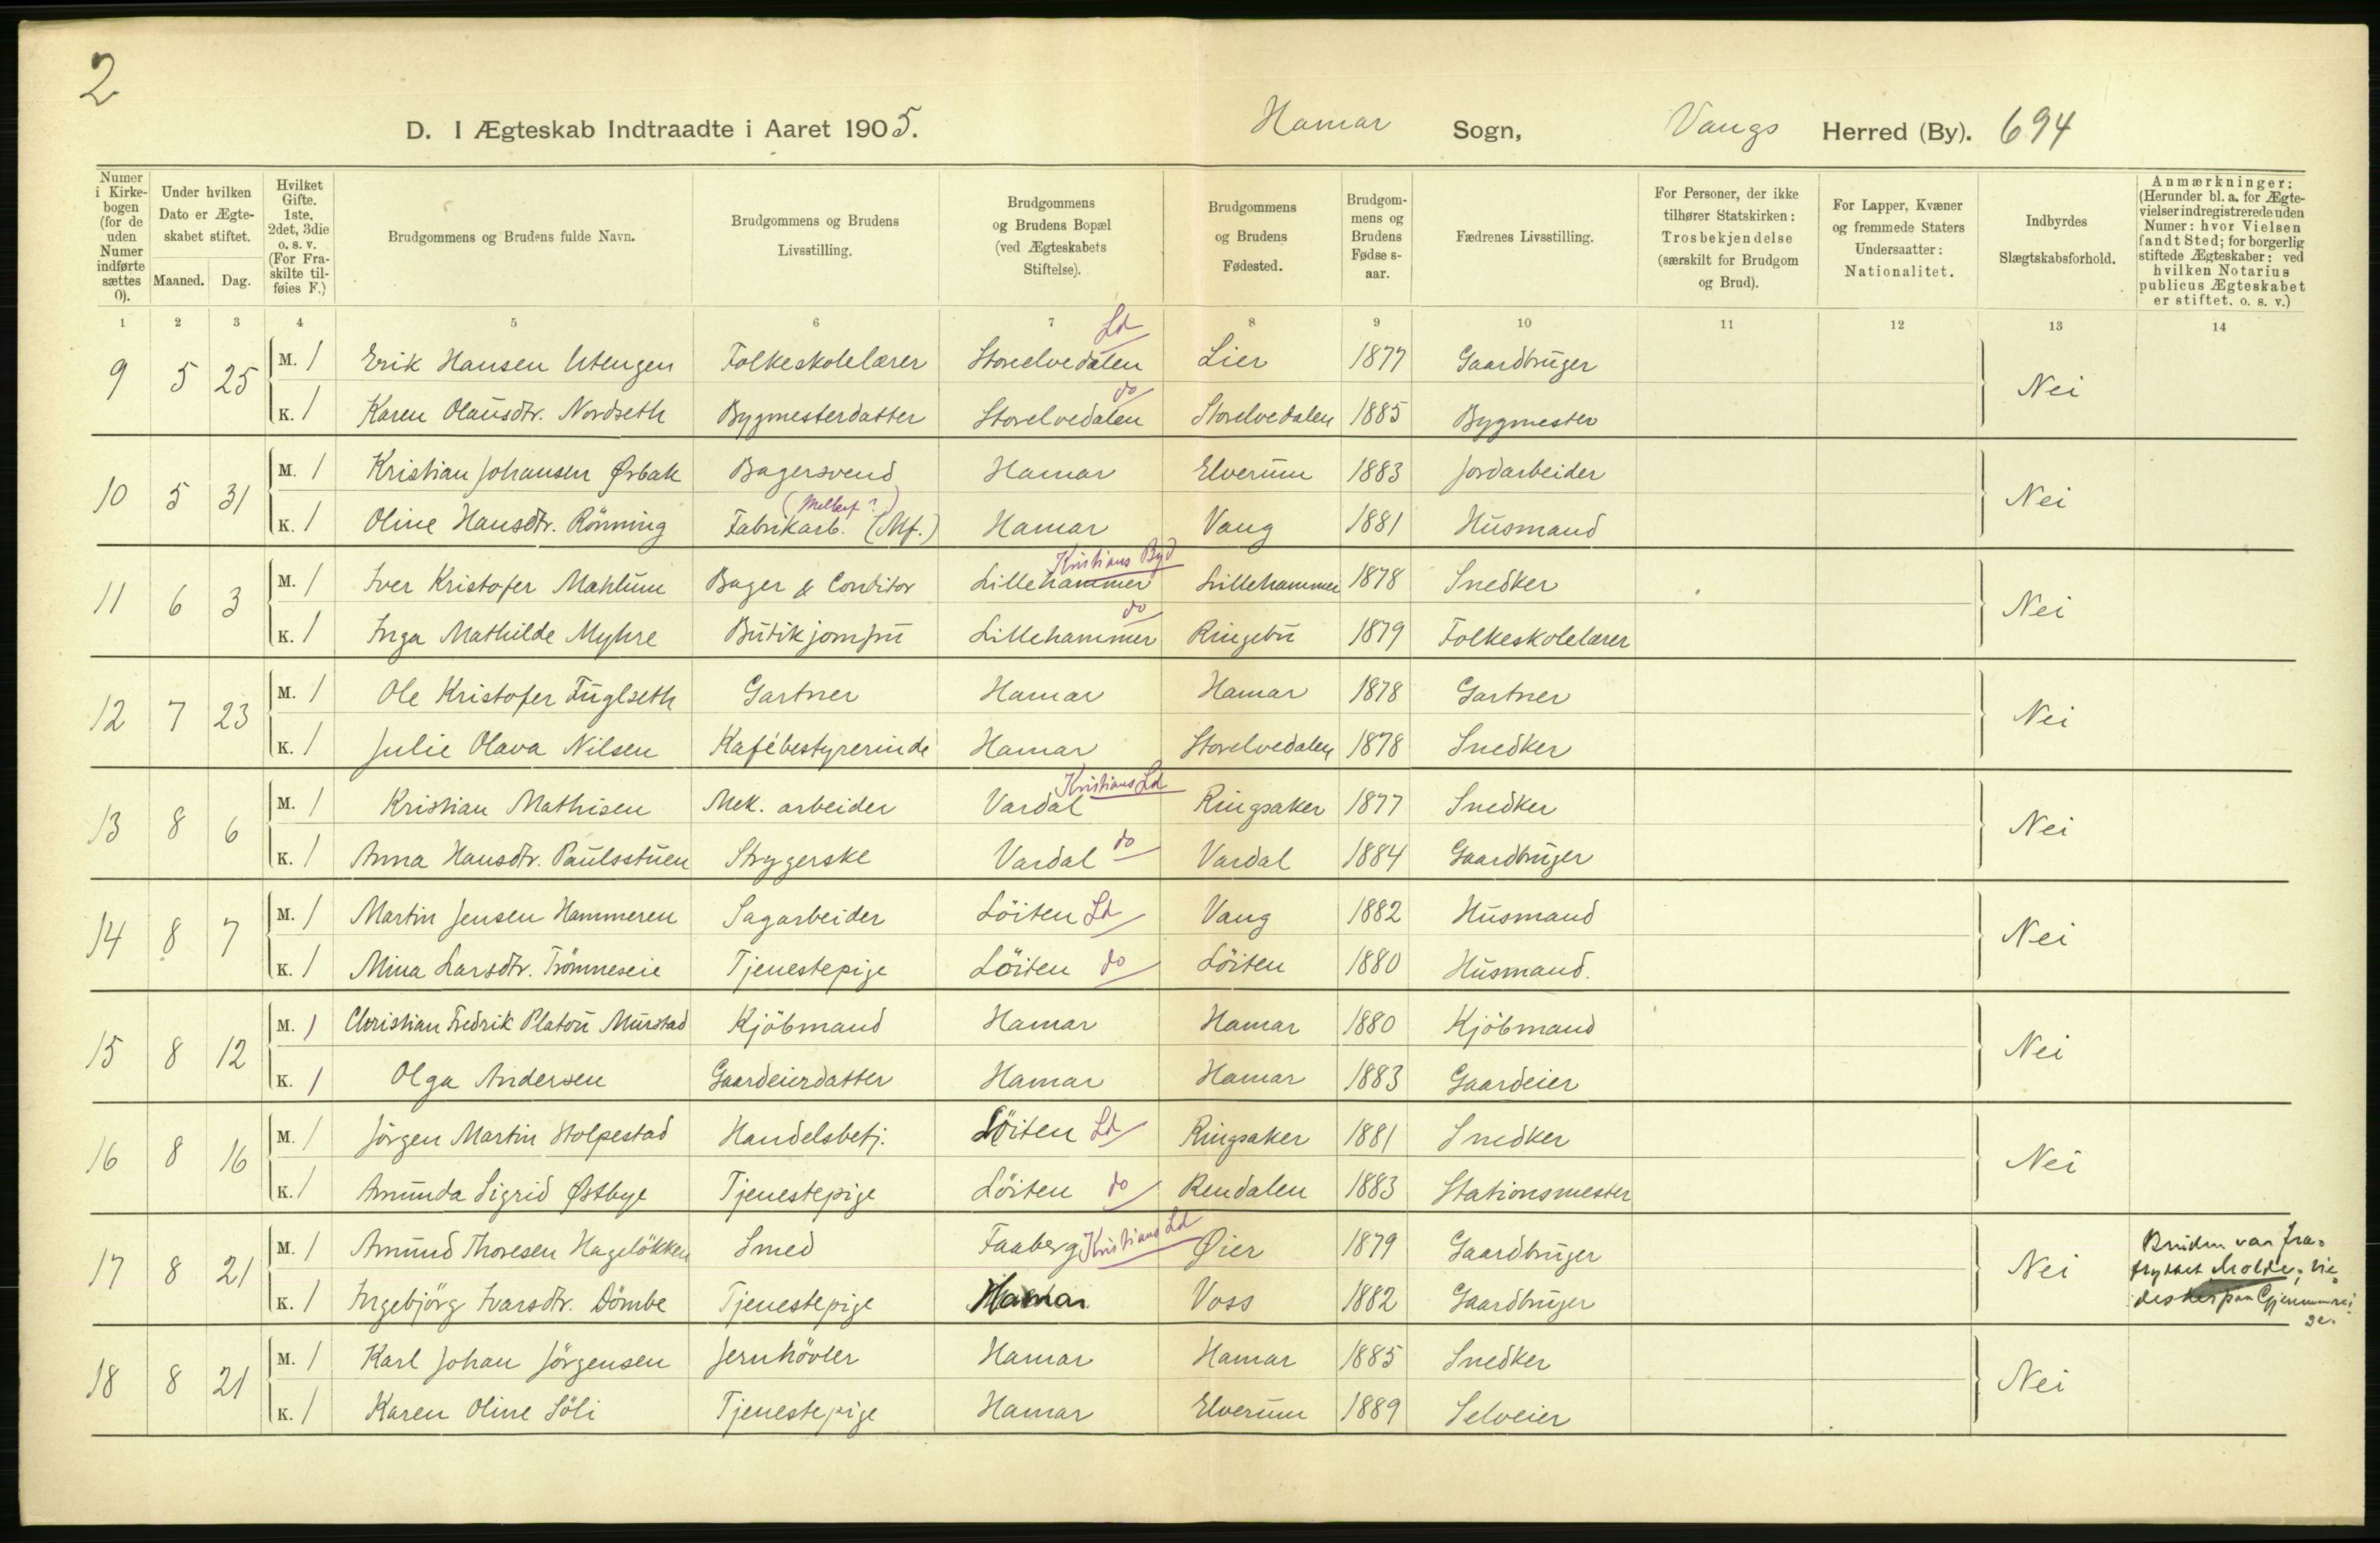 2
D. I Ægteskab Indtraadte i Aaret 1905. Hamar Sogn, Vangs Herred (By). 694
Numer i Kirkebogen (for de uden Numer indførte sættes 0).
Under hvilken Dato er Ægteskabet stiftet.
Maaned. Dag.
Hvilket Gifte. 1ste, 2det, 3die o. s. v. (For Fraskilte tilføies F.)
Brudgommens og Brudens fulde Navn.
Brudgommens og Brudens Livsstilling.
Brudgommens og Brudens Bopæl (ved Ægteskabets Stiftelse).
Brudgommens og Brudens Fødested.
Brudgommens og Brudens Fødselsaar.
Fædrenes Livsstilling.
For Personer, der ikke tilhører Statskirken: Trosbekjendelse (særskilt for Brudgom og Brud).
For Lapper, Kvæner og fremmede Staters Undersaatter: Nationalitet.
Indbyrdes Slægtskabsforhold.
Anmærkninger: (Herunder bl. a. for Ægtevielser indregistrerede uden Numer: hvor Vielsen fandt Sted; for borgerlig stiftede Ægteskaber: ved hvilken Notarius publicus Ægteskabet er stiftet. o. s. v.)
1 2 3 4 5 6 7 8 9 10 11 12 13 14
9 5 25 M. 1 Erik Hansen Utengen Folkeskolelærer Storelvedalen Ld Lier 1877 Gaardbruger Nei
K. 1 Karen Olausdtr. Nordseth Bygmesterdatter Storelvedalen do Storelvedalen 1885 Bygmester
10 5 31 M. 1 Kristian Johansen Ørbak Bagersvend Hamar Elverum 1883 Jordarbeider Nei
K. 1 Oline Hansdtr. Rönning Fabrikarb. (Mf.) Hamar Vang 1881 Husmand
11 6 3 M. 1 Iver Kristofer Mæhlum Bager & Conditor Lillehammer Kristians Byd Lillehammer 1878 Snedker Nei
K. 1 Inga Mathilde Myhre Butikjomfru Lillehammer do Ringebu 1879 Folkeskolelærer
12 7 23 M. 1 Ole Kristofer Fuglseth Gartner Hamar Hamar 1878 Gartner Nei
K. 1 Julie Olava Nilsen Kafébestyrerinde Hamar Storelvedalen 1878 Snedker
13 8 6 M. 1 Kristian Mathisen Mek. arbeider Vardal Kristians Ld Ringsaker 1877 Snedker Nei
K. 1 Anna Hansdtr. Paulsstuen Strygerske Vardal do Vardal 1884 Gaardbruger
14 8 7 M. 1 Martin Jensen Hammeren Sagarbeider Löiten Ld Vang 1882 Husmand Nei
K. 1 Mina Larsdtr. Trömneseie Tjenestepige Löiten do Löiten 1880 Husmand.
15 8 12 M. 1 Christian Fredrik Platou Murstad Kjöbmand Hamar Hamar 1880 Kjöbmand Nei
K. 1 Olga Andersen Gaardeierdatter Hamar Hamar 1883 Gaardeier
16 8 16 M. 1 Jörgen Martin Stolpestad Handelsbetj. Löiten Ld Ringsaker 1881 Snedker Nei
K. 1 Amunda Sigrid Østbye Tjenestepige Löiten do Rendalen 1883 Stationsmester
17 8 21 M. 1 Amund Thoresen Hagelökken Smed Faaberg Kristians Ld Øier 1879 Gaardbruger Nei
K. 1 Ingebjörg Ivarsdtr. Dömbe Tjenestepige Hamar Voss 1882 Gaardbruger
Bruden var fra-
flyttet Molde; vie-
paa Gjennemrei
se.
18 8 21 M. 1 Karl Johan Jörgensen Jernhövler Hamar Hamar 1885 Snedker Nei
K. 1 Karen Oline Söli Tjenestepige Hamar Elverum 1889 Selveier